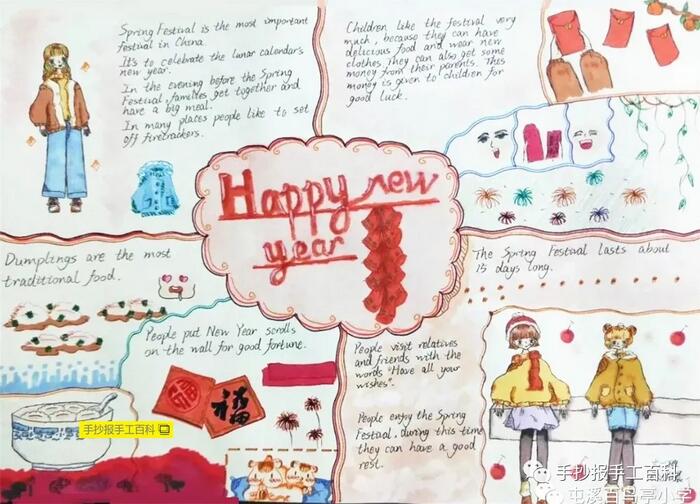 Spring Festival is the most important
festival in China.
It's to celebrate the lunar calendar's
new year.
In the evening before the Spring
Festival, families get together and
have a big meal.
In many places people like to set
off firecrackers.
Children like the festival very
much, because they can have
delicious food and wear new
clothes. They can also get some
money from their parents. This
money is given to children for
good luck.
Happy new
year
Dumplings are the most
traditional food.
People put New Year scrolls
on the wall for good fortune.
福
福
The Spring Festival lasts about
15 days long.
People visit relatives
and friends with the
words "Have all your
wishes".
People enjoy the Spring
Festival, during this time
they can have a good
rest.
手抄报手工百科
手抄报手工百科
屯溪百鸟亭小学